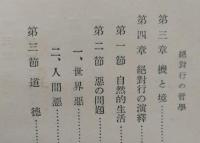 絕對行の哲學
第三章 機と境
第四章 絕對行の演繹
第一節 自然的生活
第二節 惡の問題
一、世界惡
二、人間惡
第三節 道德